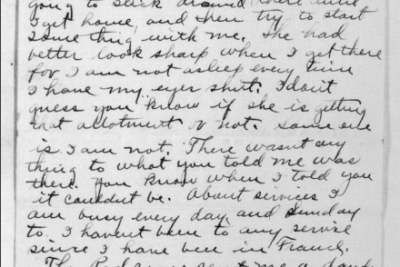 going to stick around there until
I get home, and then try to start
some thing with me. She had
better look sharp when I get there
for I am not asleep every time
I have my eyes shut. I dont
guess you know if she is getting
that allotment or not. some one
is I am not. There wasnt any
thing to what you told me was
there. you know when I told you
it couldnt be. About services I
am busy every day, and Sunday
to. I havent been to any service
since I have been in France.
The Red
me a